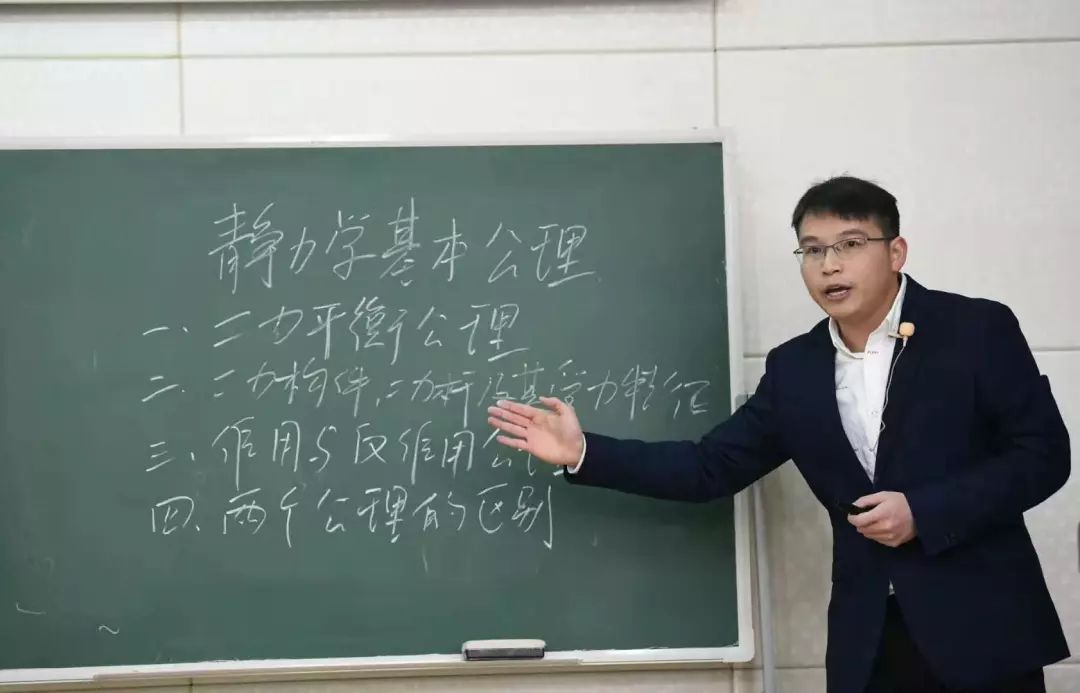 静力学基本公理
一、二力平衡公理
二、二力构件,二力杆及其受力特征
三、作用与反作用公
四、两个公理的区别